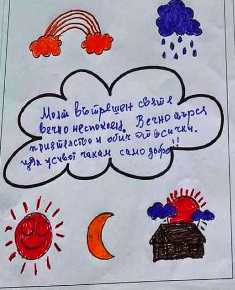 Моят вътрешен свят е
вечно неспокоен. Вечно търся
приятелство и обич от всички.
чакам само добро!!